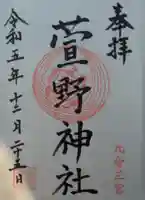 奉拝
萱野神社
令和五年十二月二十五日